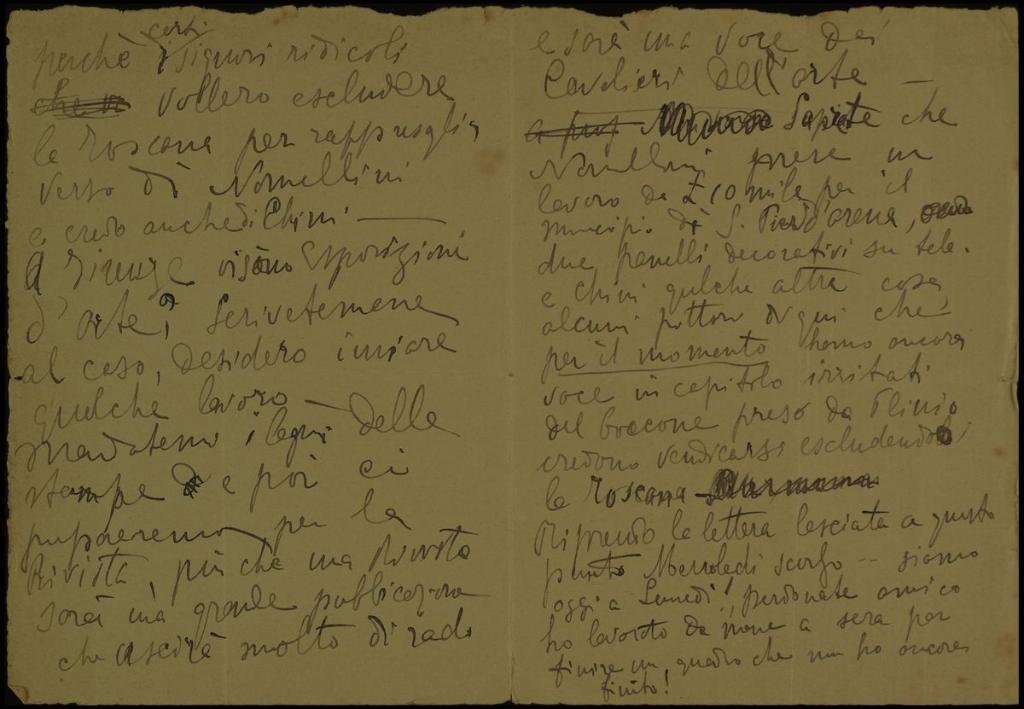 perchè certi signori ridicoli
vollero escludere
la Toscana per rappresaglia
verso di Nomellini
e credo anche di Chini —
A Firenze vi sono Esposizioni
d'Arte? Scrivetemene
al caso, desidero inviare
qualche lavoro —
Mandatemi i legni delle
stampe e poi ci
prepareremo per la
Rivista, più che una Rivista
sarà una grande pubblicazione
che uscirà molto di rado
e sarà una voce dei
Cavalieri dell'arte —
Sapete che
Nomellini prese un
lavoro da £ 10 mila per il
municipio di S. Pierd'arena,
due panelli decorativi su tele.
e Chini qualche altra cosa,
alcuni pittori di qui che
per il momento hanno ancora
voce in capitolo irritati
del boccone preso da Plinio
credono vendicarsi escludendo
la Toscana
Riprendo la lettera lasciata a questo
punto Mercoledì scorso -- siamo
oggi a Lunedì!, perdonate amico
ho lavorato da mane a sera per
finire un quadro che non ho ancora
finito!